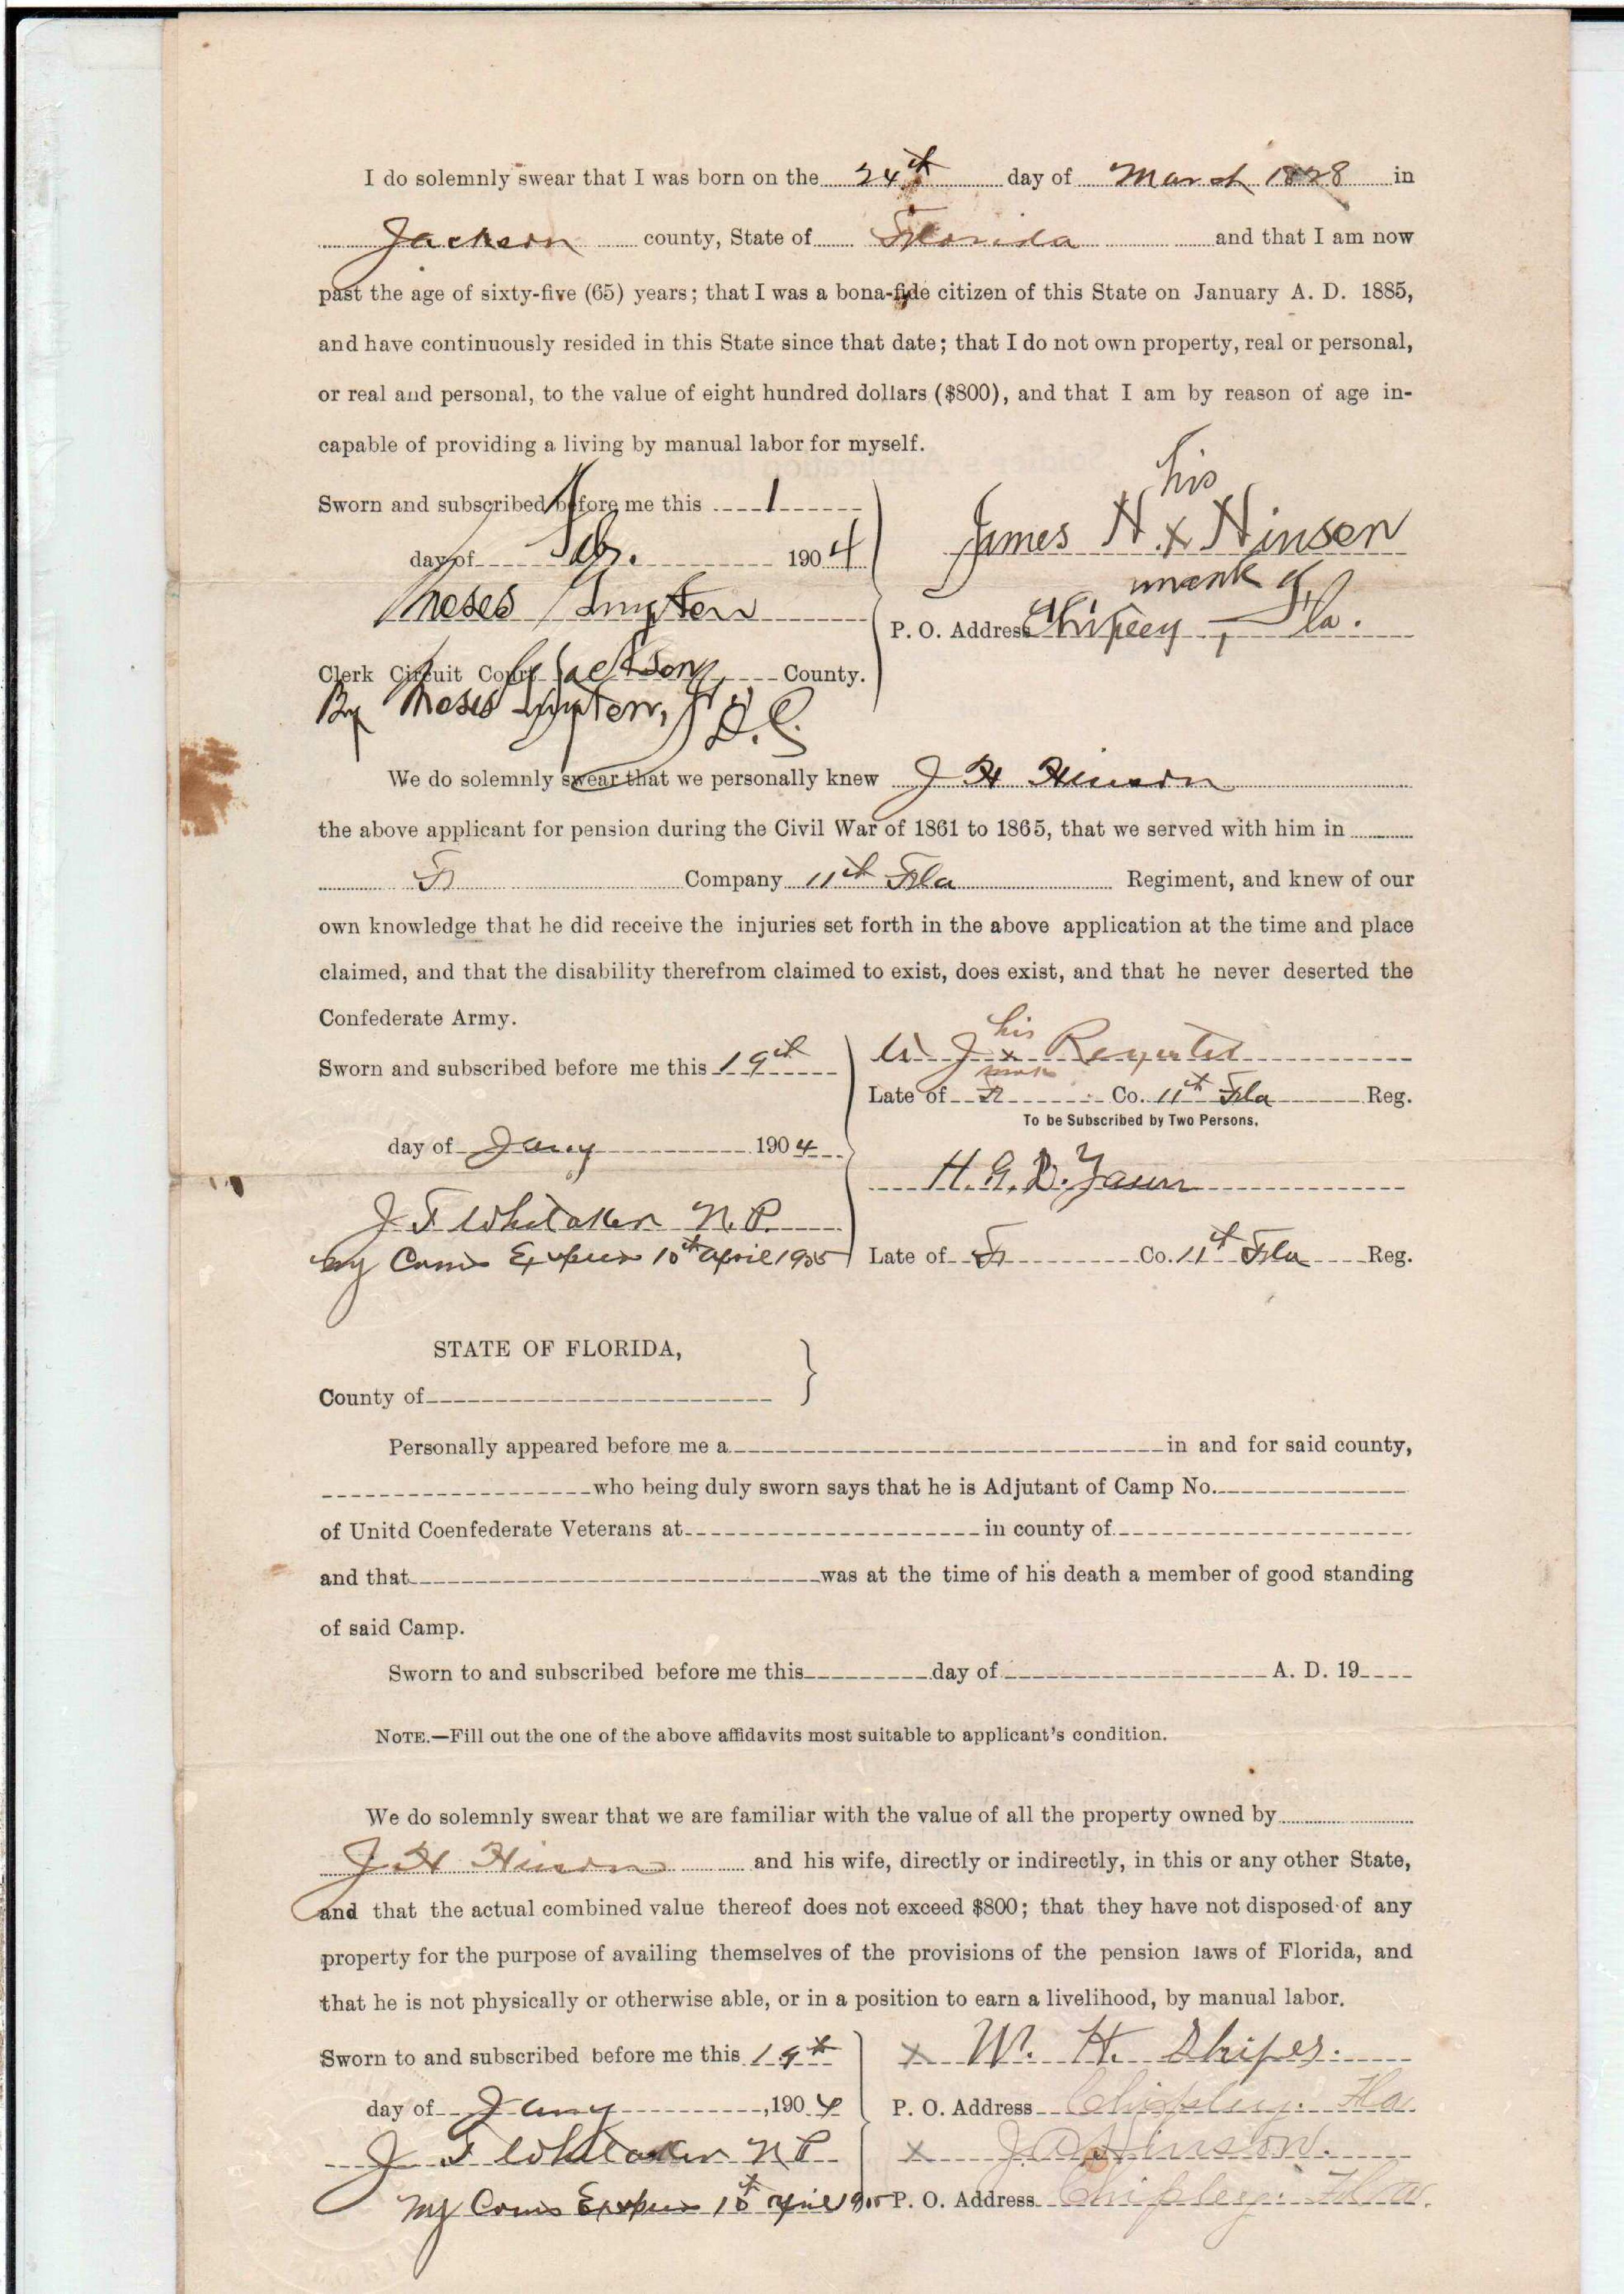 I do solemnly swear that I was born on the 24th day of March 1828 in
Jackson county, State of Florida and that I am now
past the age of sixty-five (65) years; that I was a bona-fide citizen of this State on January A. D. 1885,
and have continuously resided in this State since that date; that I do not own property, real or personal,
or real and personal, to the value of eight hundred dollars ($800), and that I am by reason of age in-
capable of providing a living by manual labor for myself.
Sworn and subscribed before me this 1
his
James H. x Hinson
mark
day of Feb. 1904
Moses
P. O. Address Chipley, Fla.
Clerk Circuit Court Jackson County.
By Moses D.C.
We do solemnly swear that we personally knew J H Hinson
the above applicant for pension during the Civil War of 1861 to 1865, that we served with him in
Company 11th Fla Regiment, and knew of our
own knowledge that he did receive the injuries set forth in the above application at the time and place
claimed, and that the disability therefrom claimed to exist, does exist, and that he never deserted the
Confederate Army.
his
Sworn and subscribed before me this 19th
W J x Register
mark
Late of Co. 11th Fla Reg.
To be Subscribed by Two Persons.
day of Jany 1904
H. G. D.
J T Whitaker N. P.
My Comis Expires 10th april 1905
Late of Co. 11th Fla Reg.
STATE OF FLORIDA,
County of
Personally appeared before me a in and for said county,
who being duly sworn says that he is Adjutant of Camp No.
of Unitd Coenfederate Veterans at in county of
and that was at the time of his death a member of good standing
of said Camp.
Sworn to and subscribed before me this day of A. D. 19
NOTE.—Fill out the one of the above affidavits most suitable to applicant's condition.
We do solemnly swear that we are familiar with the value of all the property owned by
J H Hinson and his wife, directly or indirectly, in this or any other State,
and that the actual combined value thereof does not exceed $800; that they have not disposed of any
property for the purpose of availing themselves of the provisions of the pension laws of Florida, and
that he is not physically or otherwise able, or in a position to earn a livelihood, by manual labor.
Sworn to and subscribed before me this 19th
x W. H. Shipes.
day of Jany, 1904
P. O. Address Chipley. Fla.
J T Whitaker N P
x J. D Hinson.
My Comis Expires 10th april 1905
P. O. Address Chipley. Fla.